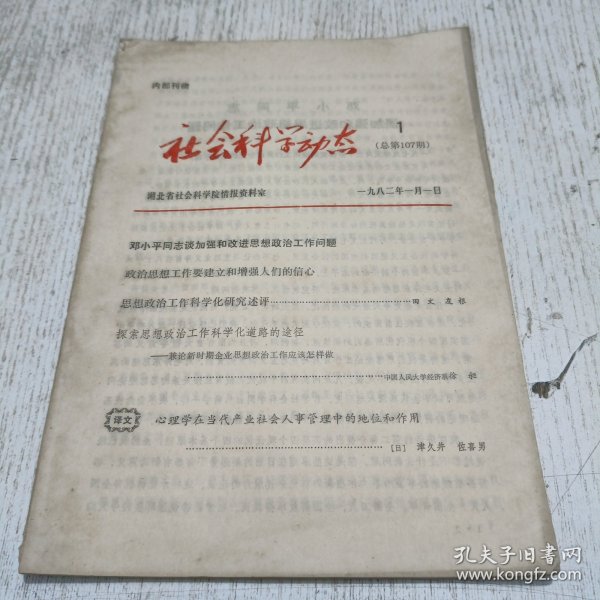 内部刊物
社会科学动态
1
(总第107期)
湖北省社会科学院情报资料室
一九八二年一月一日
邓小平同志谈加强和改进思想政治工作问题
政治思想工作要建立和增强人们的信心
思想政治工作科学化研究述评……………………田文 友根
探索思想政治工作科学化道路的途径
——兼论新时期企业思想政治工作应该怎样做
……………………中国人民大学经济系徐
译文
心理学在当代产业社会人事管理中的地位和作用
……………………〔日〕 津久井 佐喜男
孔夫子旧书网
www.kongfz.com